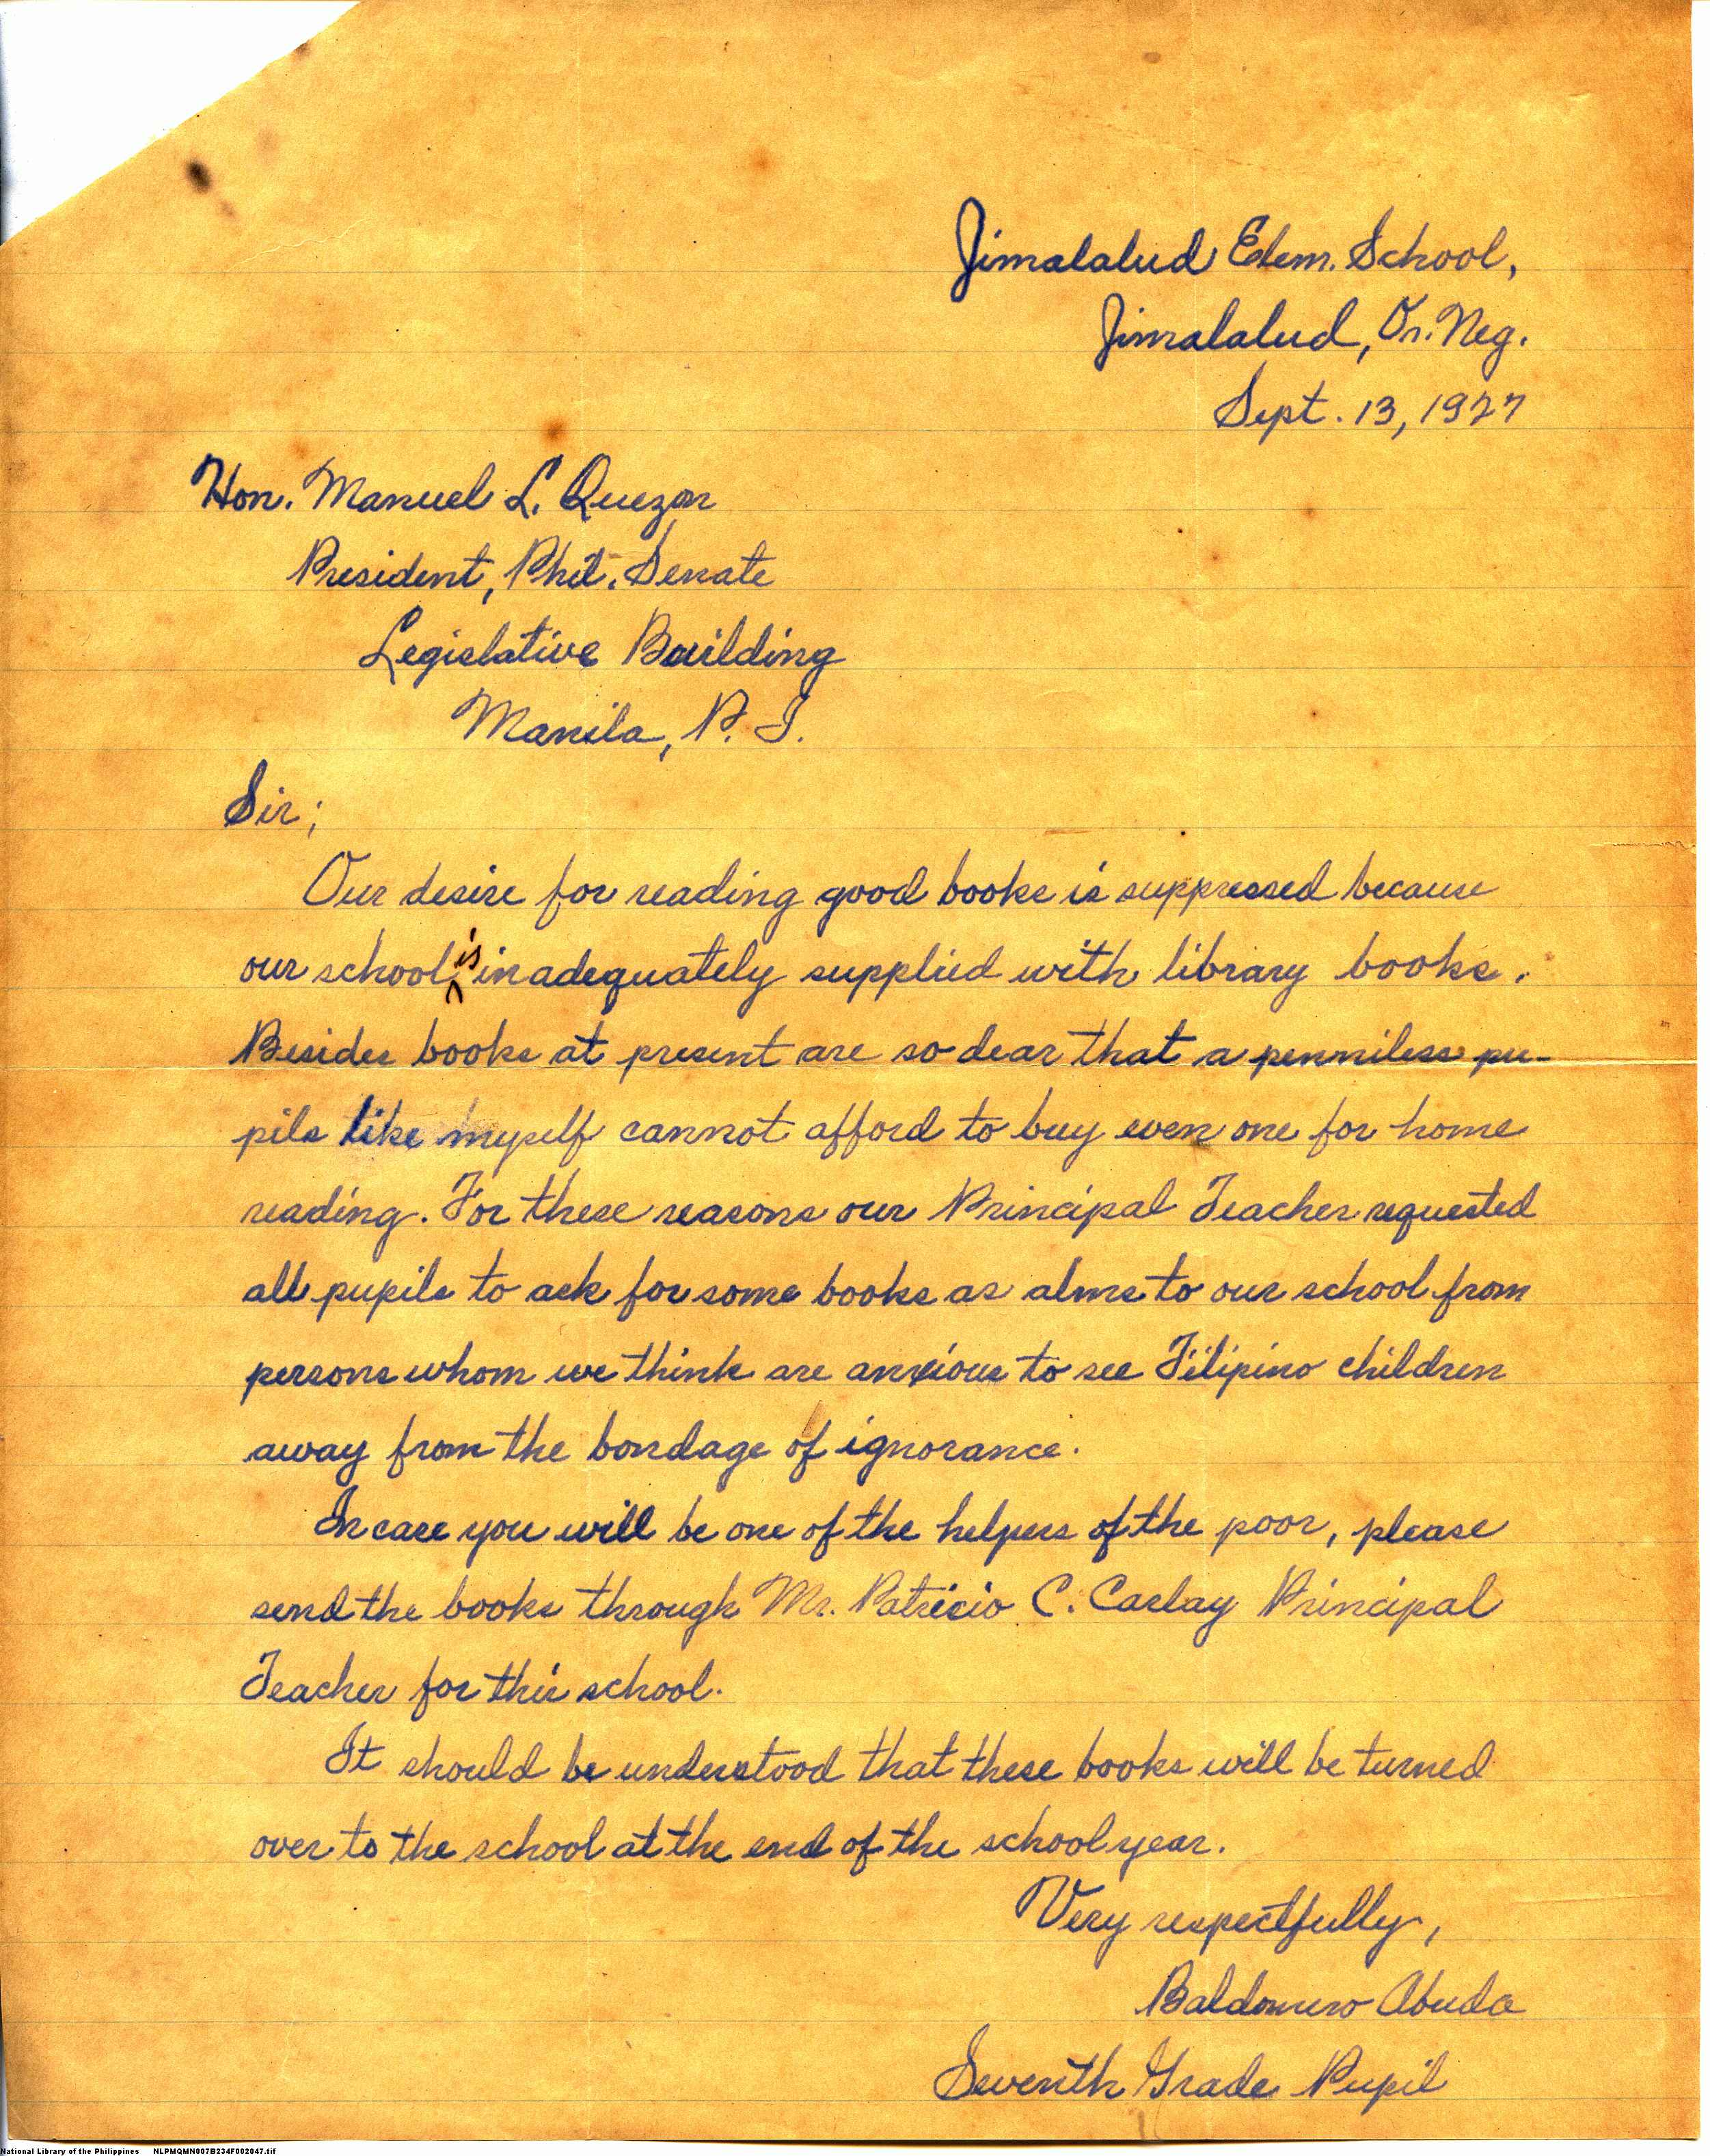 Jimalalud Elem. School,
Jimalalud, Or. Neg.
Sept. 13, 1927
Hon. Manuel L. Quezon
President, Phil. Senate
Legislative Building
Manila, P. I.
Sir;
Our desire for reading good books is suppressed because
our school is inadequately supplied with library books.
Besides books at present are so dear that a penniless pu-
pils like myself cannot afford to buy even one for home
reading. For these reasons our Principal Teacher requested
all pupils to ask for some books as alms to our school from
persons whom we think are anxious to see Filipino children
away from the bondage of ignorance.
In case you will be one of the helpers of the poor, please
send the books through Mr. Patricio C. Caslay Principal
Teacher for this school.
It should be understood that these books will be turned
over to the school at the end of the school year.
Very respectfully,
Baldomero Abuda
Seventh Grade Pupil
National Library of the Philippines NLPMQMN007B234F002047.tif